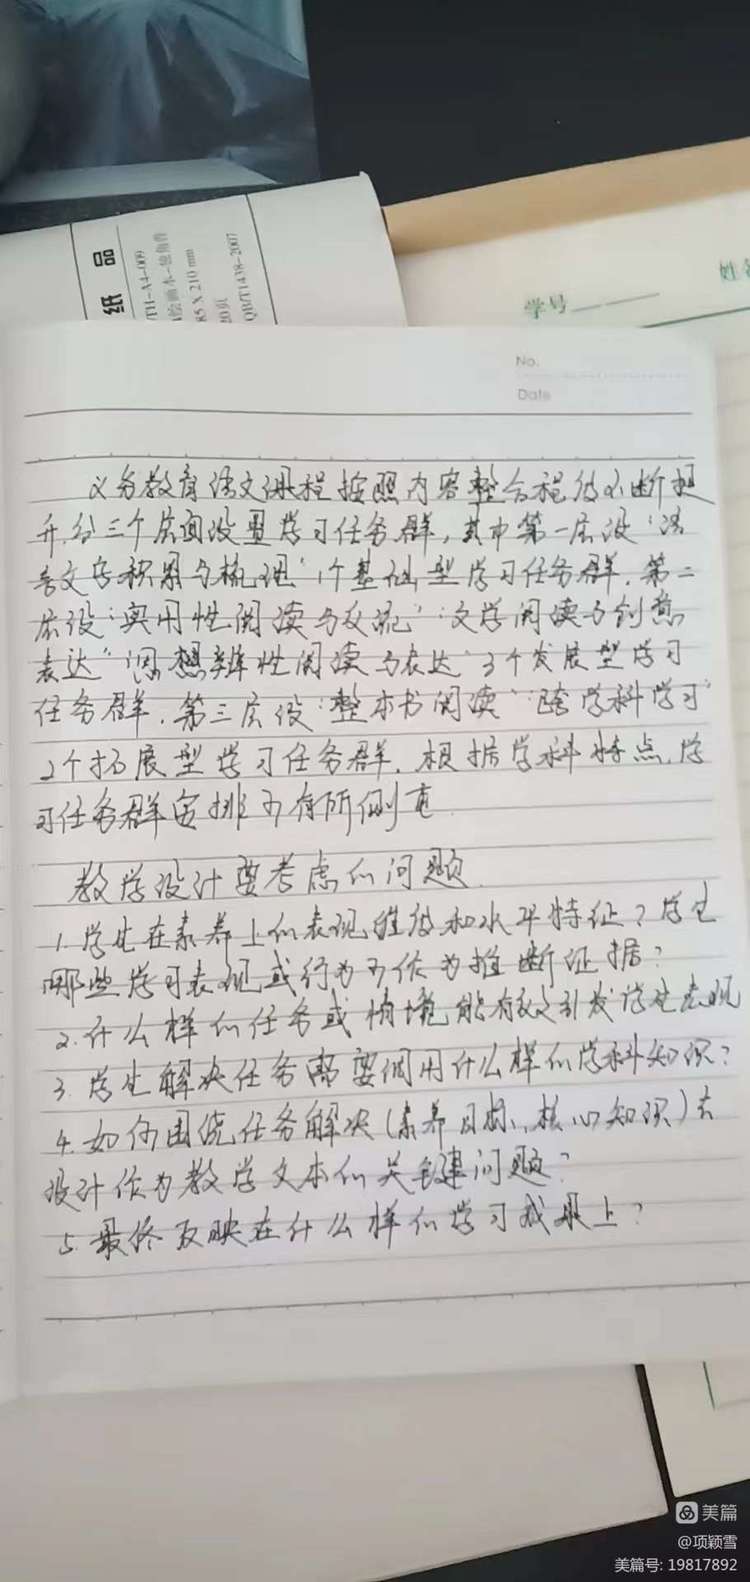 纸 品
TH-A4-009
绘画本-独角兽
85 X 210 mm
20页
QB/T1438-2007
学号
姓名
No.
Date
义务教育语文课程按照内容整合程度不断提
升,分三个层面设置学习任务群,其中第一层设“语
言文字积累与梳理”1个基础型学习任务群,第二
层设“实用性阅读与交流”“文学阅读与创意
表达”“思想辨性阅读与表达”3个发展型学习
任务群,第三层设“整本书阅读”“跨学科学习”
2个拓展型学习任务群.根据学科特点,学
习任务群安排可有所侧重
教学设计要考虑的问题.
1.学生在素养上的表现维度和水平特征?学生
哪些学习表现或行为可作为推断证据?
2.什么样的任务或情境能有效引发学生表现
3.学生解决任务需要调用什么样的学科知识?
4.如何围绕任务解决(素养目标、核心知识)去
设计作为教学文本的关键问题?
5.最终反映在什么样的学习成果上?
美篇
@项颖雪
美篇号: 19817892